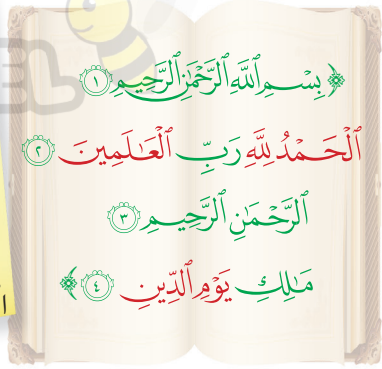 ﴿ بِسْمِ ٱللَّهِ ٱلرَّحْمَٰنِ ٱلرَّحِيمِ ١
ٱلْحَمْدُ لِلَّهِ رَبِّ ٱلْعَٰلَمِينَ ٢
ٱلرَّحْمَٰنِ ٱلرَّحِيمِ ٣
مَٰلِكِ يَوْمِ ٱلدِّينِ ٤ ﴾